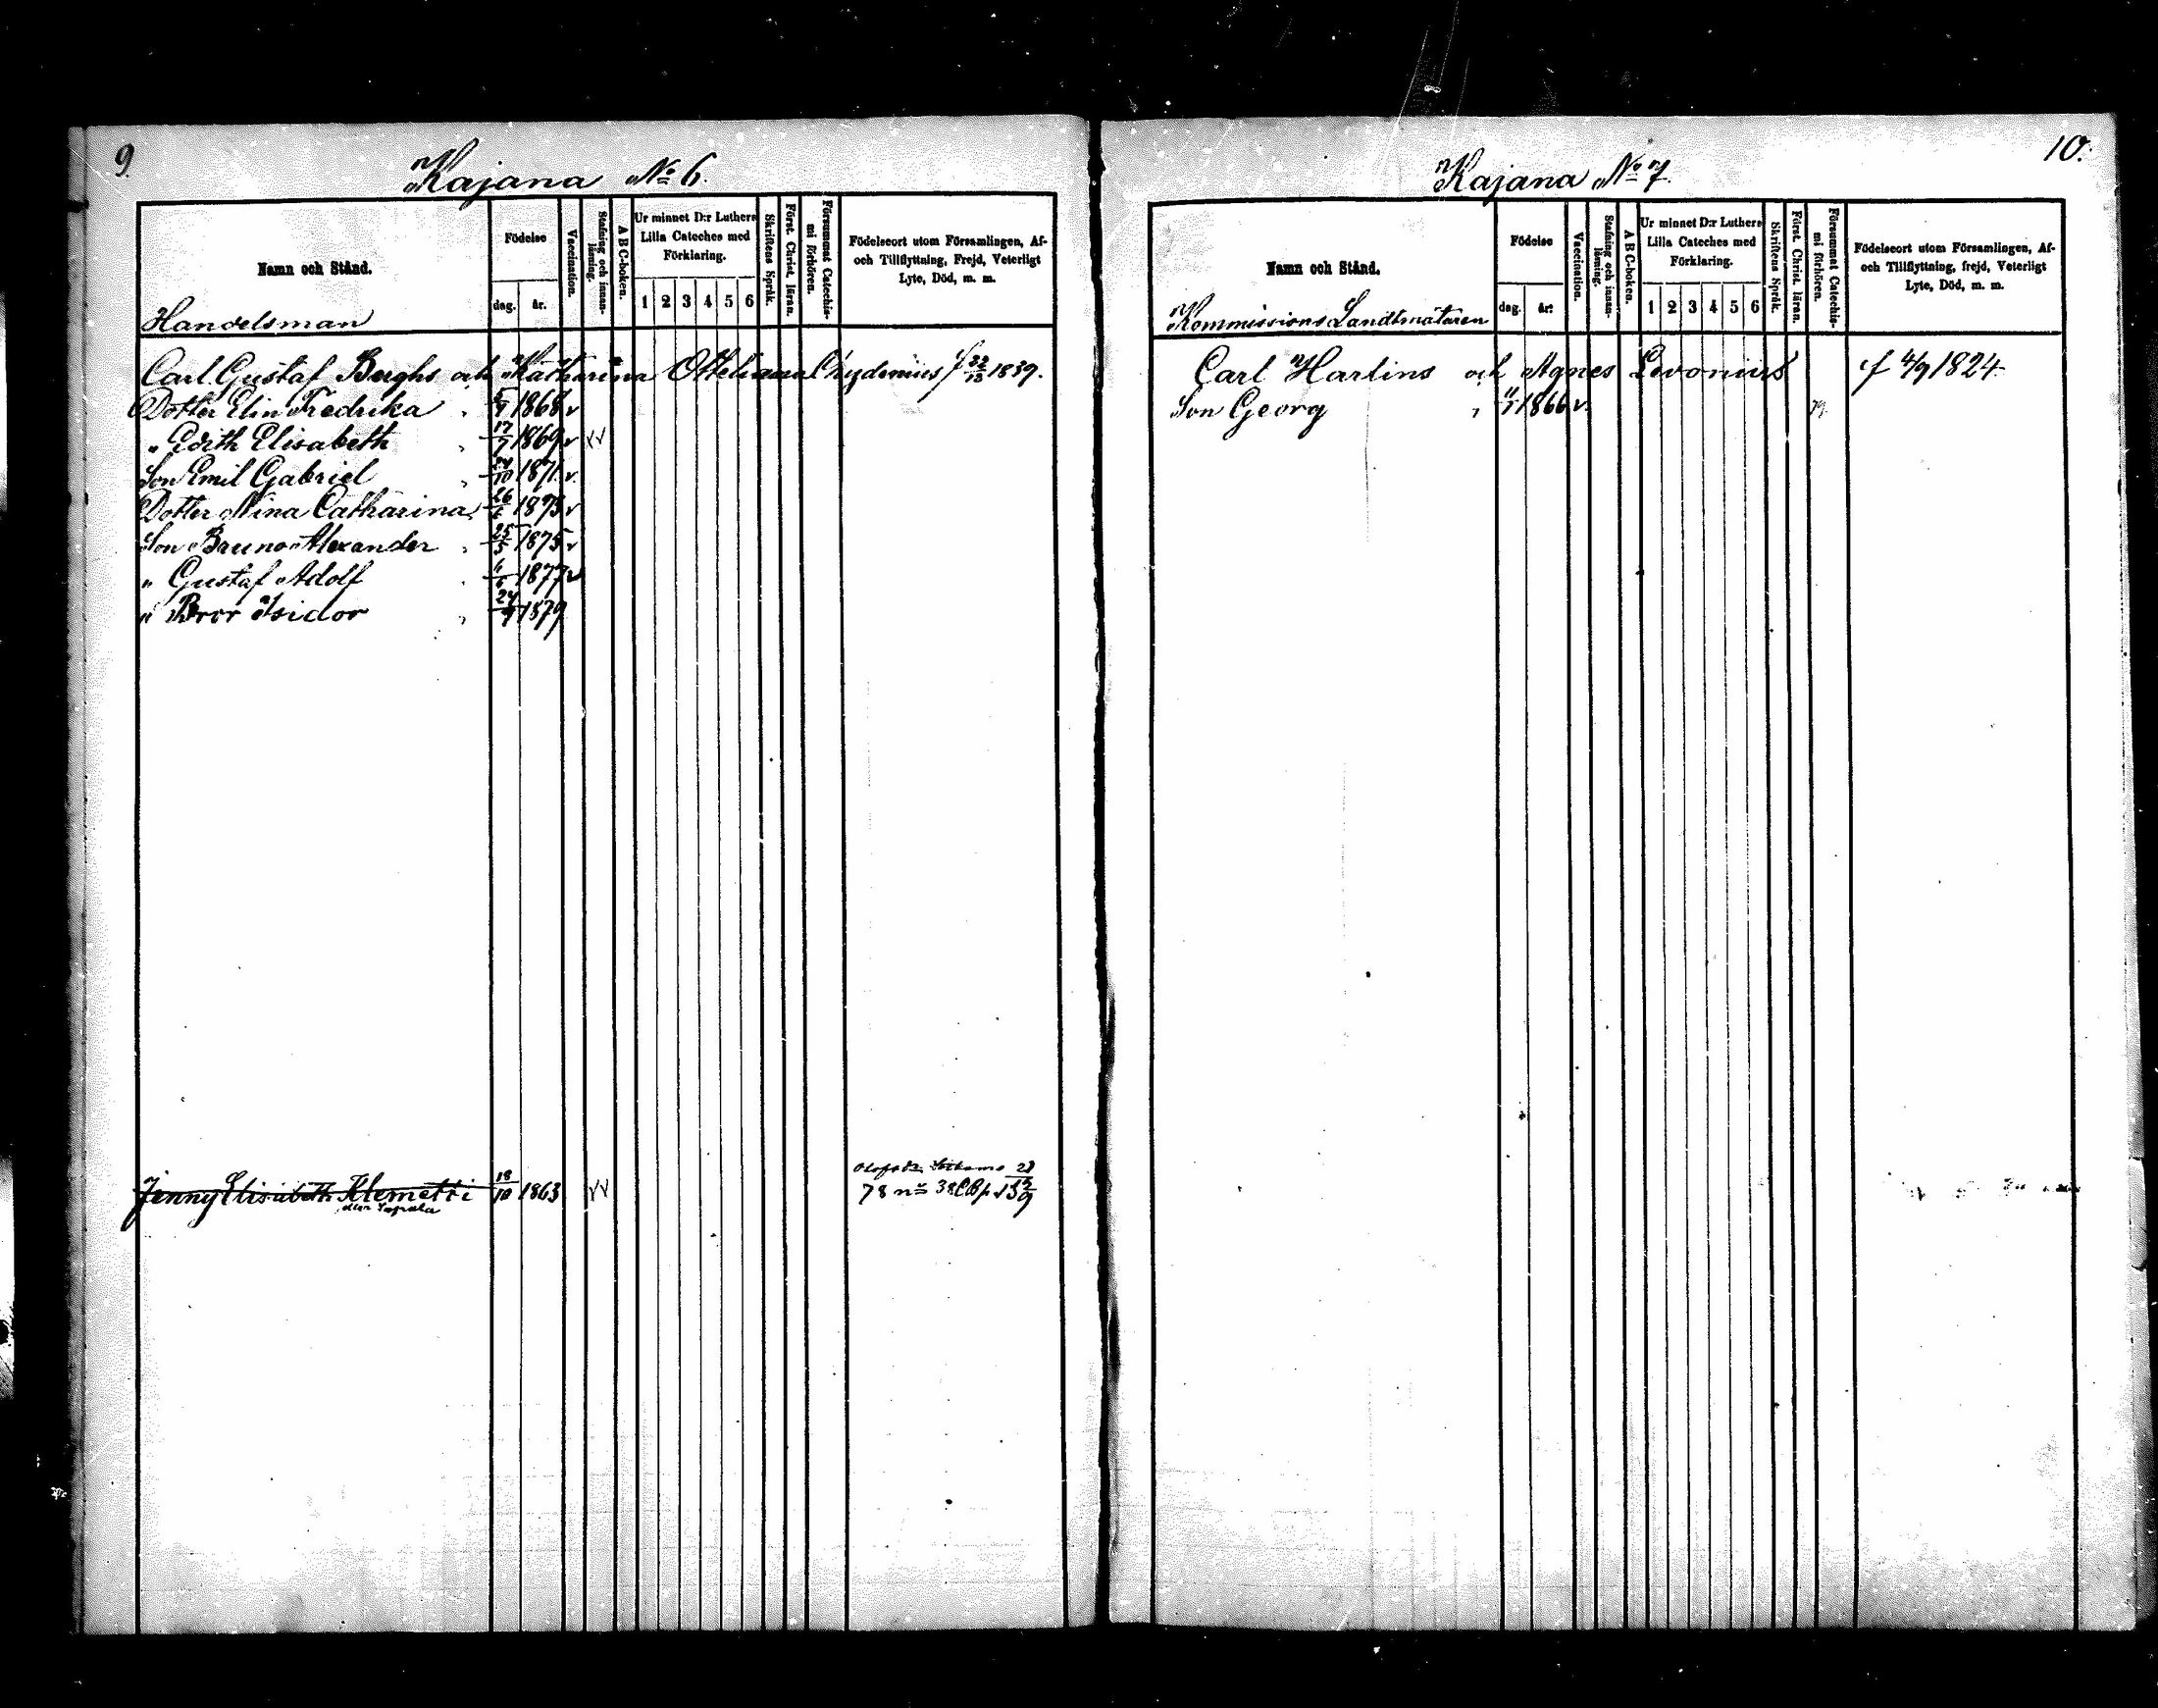 9.
Kajana No 6.
Namn och Stånd.
Födelse
dag.
år.
Vaccination.
Stafning och innan-
läsning.
A B C-boken.
Ur minnet D:r Luthers
Lilla Cateches med
Förklaring.
1 2 3 4 5 6
Skriftens Språk.
Först. Christ. läran.
Försummat Catechis-
mi förhören.
Födelseort utom Församlingen, Af-
och Tillflyttning, Frejd, Veterligt
Lyte, Död, m. m.
Handelsman
Carl Gustaf Berghs och Katharina Otteliana Chydenius f 1839.
Dotter Elin Fredrika 1868 v
" Edith Elisabeth 17/7 1869 v vv
Son Emil Gabriel 1871 v.
Dotter Nina Catharina 1873 v
Son Bruno Alexander 25/5 1875 v
" Gustaf Adolf 1877 v
" Bror Isidor 1879
Jenny Elisabeth Klemetti 18/10 1863 vv
78 no 38
10.
Kajana No 7.
Namn och Stånd.
Födelse
dag.
år:
Vaccination.
Stafning och innan-
läsning.
A B C-boken.
Ur minnet D:r Luthers
Lilla Cateches med
Förklaring.
1 2 3 4 5 6
Skriftens Språk.
Först. Christ. läran.
Försummat Catechis-
mi förhören.
Födelseort utom Församlingen, Af-
och Tillflyttning, frejd, Veterligt
Lyte, Död, m. m.
Kommissions Landtmätaren
Carl Harlins och Agnes Levonius f 4/9 1824
Son Georg 1866 v. 79.